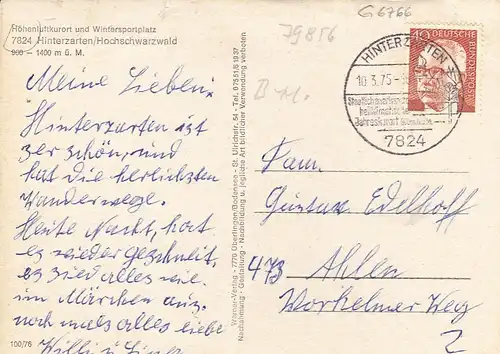 Höhenluftkurort und Wintersportplatz
7824 Hinterzarten/Hochschwarzwald
900 – 1400 m ü. M.
Meine Lieben.
Hinterzarten ist
schön, und
hat die herlichsten
Wanderwege.
Heute Nacht, hat
es wieder geschneit,
es sied alles wie
im Märchen aus.
noch mals alles liebe
Willi u.
100/76
Werner-Verlag - 7770 Überlingen/Bodensee - St. Ulrichstr. 54 - Tel. 07551/51937
Nachahmung - Gestaltung - Nachbildung u. jegliche Art bildlicher Verwendung verboten
79856
G6766
HINTERZARTEN
10.3.75
heilklimatischer
Jahreskurort
7824
40
DEUTSCHE
BUNDESPOST
Fam.
Gustav Edelhoff
473 Ahlen
Workelmer Weg
2